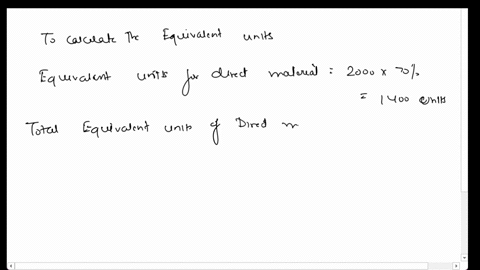 To calculate The Equivalent units
Equivalent units for direct material = 2000 x 70%
= 1400 units
Total Equivalent units of Direct m